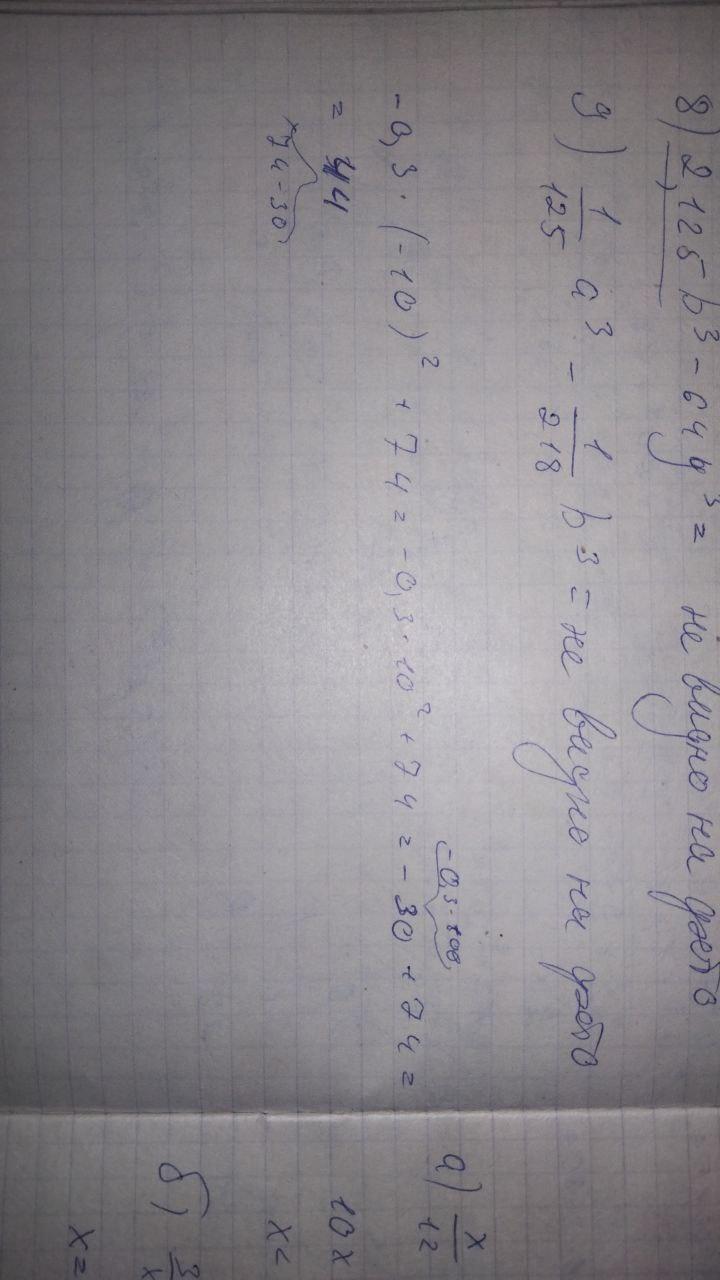 8) 2 125 b³ - 64 y³ = не видно на фото
9) 1/125 a³ - 1/218 b³ = не видно на фото
-0,3·100
-0,3 · (-10)² + 74 = -0,3·10² + 74 = -30 + 74 =
= 44
74-30
а) x/12
10x
x=
б) 3/x
x=